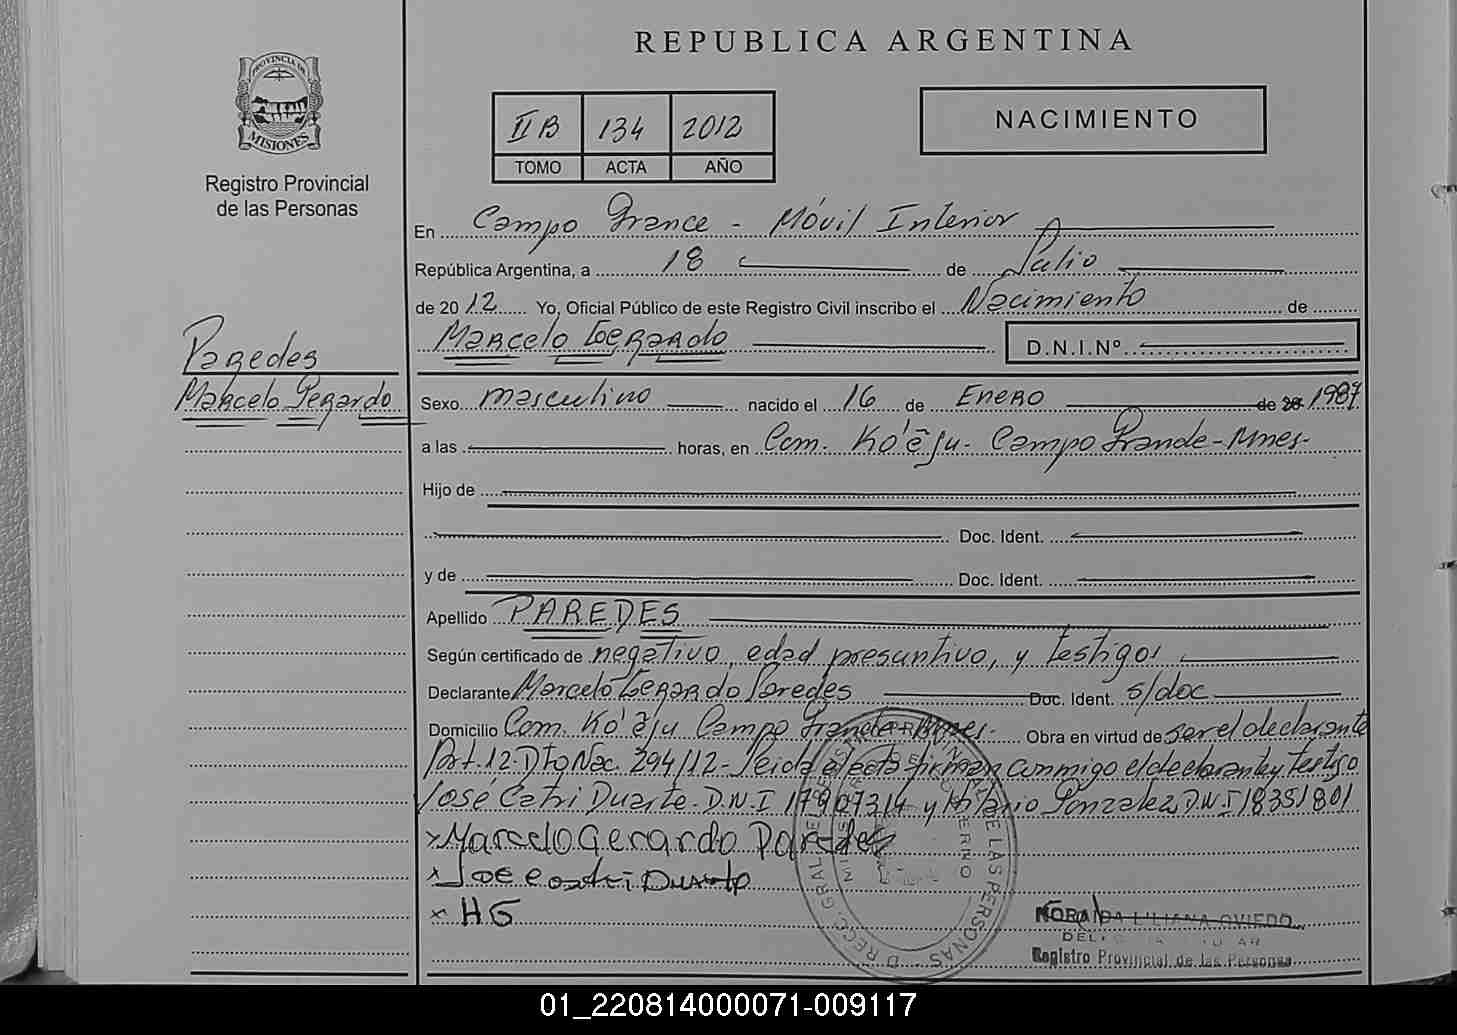 REPUBLICA ARGENTINA
PROVINCIA DE
MISIONES
Registro Provincial
de las Personas
II B 134 2012
TOMO ACTA AÑO
NACIMIENTO
En Campo Grance - Móvil Interior
República Argentina, a 18 de Julio
de 2012 Yo, Oficial Público de este Registro Civil inscribo el Nacimiento de
Marcelo Gerardo D.N.I.Nº
Paredes
Marcelo Gerardo
Sexo masculino nacido el 16 de Enero de 20 1987
a las horas, en Com. Ko'ẽju - Campo Grande - Mnes-
Hijo de
Doc. Ident.
y de Doc. Ident.
Apellido PAREDES
Según certificado de negativo, edad presuntivo, y testigos
Declarante Marcelo Gerardo Paredes Doc. Ident. s/doc
Domicilio Com. Ko'ẽju Campo Grande - Mnes- Obra en virtud de ser el declarante
Art. 12 - Dto Nac. 294/12 - Leida el acta firman conmigo el declarante y testigo
José Catri Duarte - D.N.I 17907314 y Hilario Gonzalez D.N.I 18351801
x Marcelo Gerardo Paredes
x Jose Catri Duarte
x HG
NORAIDA LILIANA OVIEDO
Registro Provincial de las Personas
01_220814000071-009117